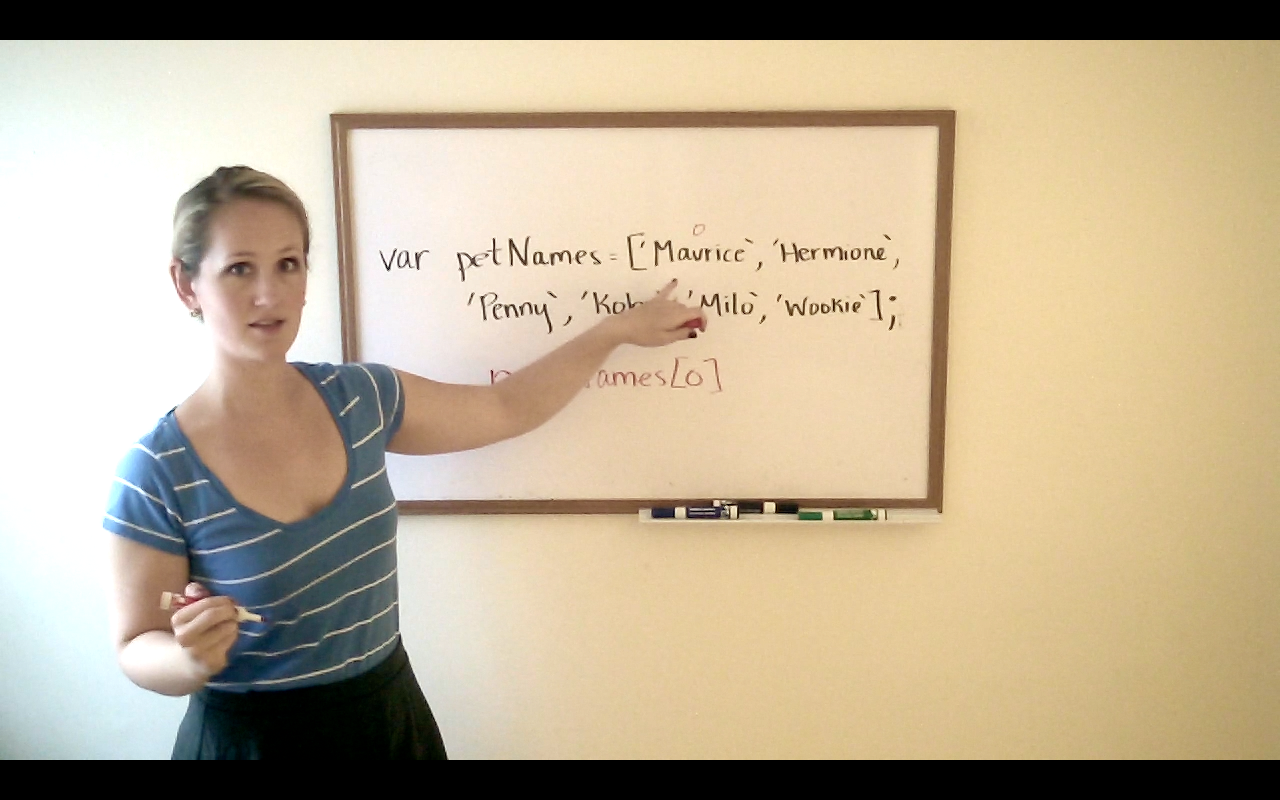 0
var petNames = ['Maurice', 'Hermione',
'Penny', 'Milo', 'Wookie'];
ames[0]